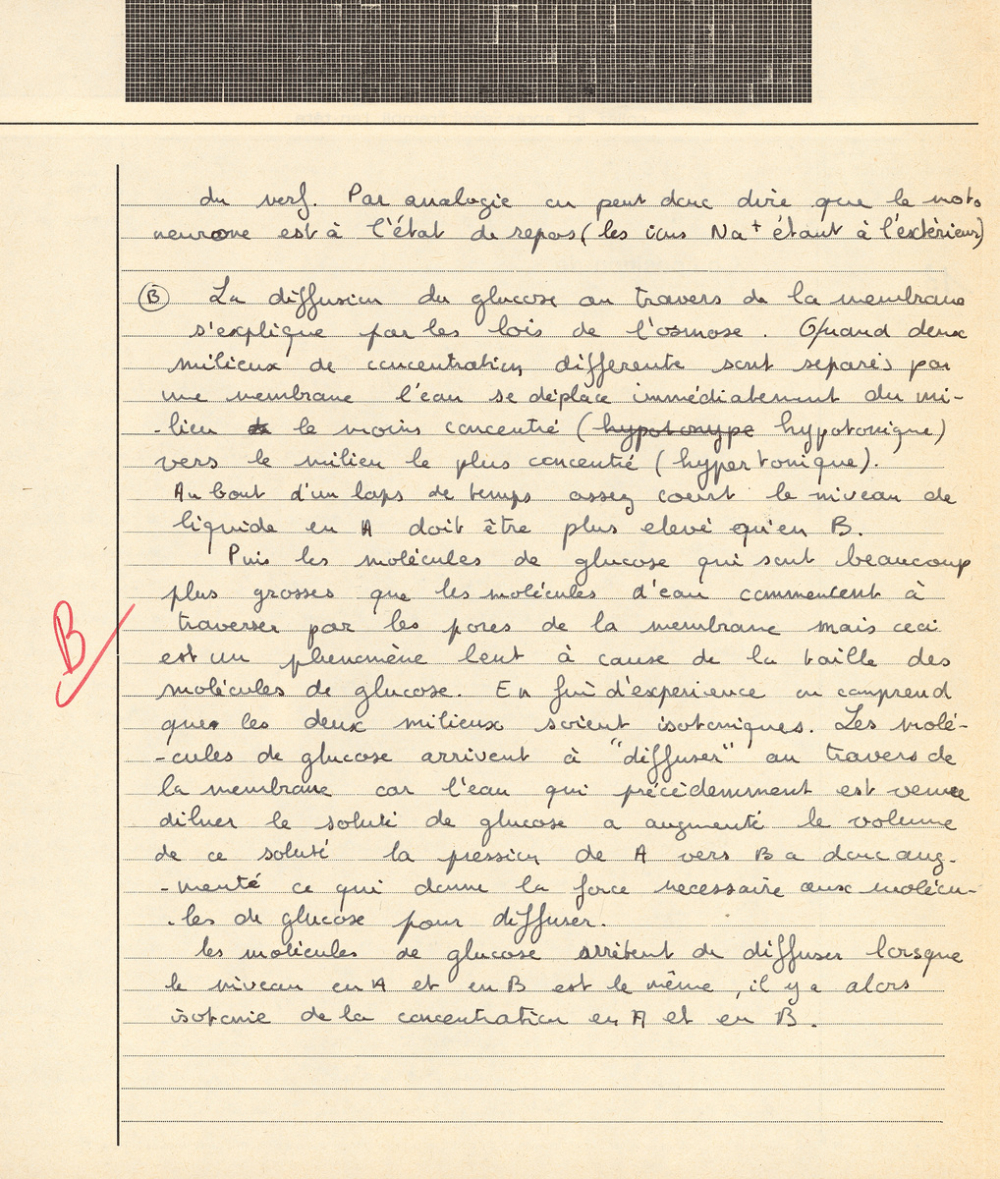 du nerf. Par analogie on peut donc dire que le moto
neurone est à l'état de repos (les ions Na+ étant à l'extérieur)
(B) La diffusion du glucose au travers de la membrane
s'explique par les lois de l'osmose. Quand deux
milieux de concentration differente sont separés par
une membrane l'eau se déplace immédiatement du mi-
-lieu le moins concentré (hypotonype hypotonique)
vers le milieu le plus concentré (hypertonique).
Au bout d'un laps de temps assez court le niveau de
liquide en A doit être plus elevé qu'en B.
Puis les molécules de glucose qui sont beaucoup
plus grosses que les molécules d'eau commencent à
traverser par les pores de la membrane mais ceci
est un phenomène lent à cause de la taille des
molécules de glucose. En fin d'experience on comprend
que les deux milieux soient isotoniques. Les molé-
-cules de glucose arrivent à "diffuser" au travers de
la membrane car l'eau qui précédemment est venue
diluer le soluté de glucose a augmenté le volume
de ce soluté la pression de A vers B a donc aug-
-menté ce qui donne la force necessaire aux molécu-
-les de glucose pour diffuser.
les molécules de glucose arrêtent de diffuser lorsque
le niveau en A et en B est le même, il y a alors
isotonie de la concentration en A et en B.
B